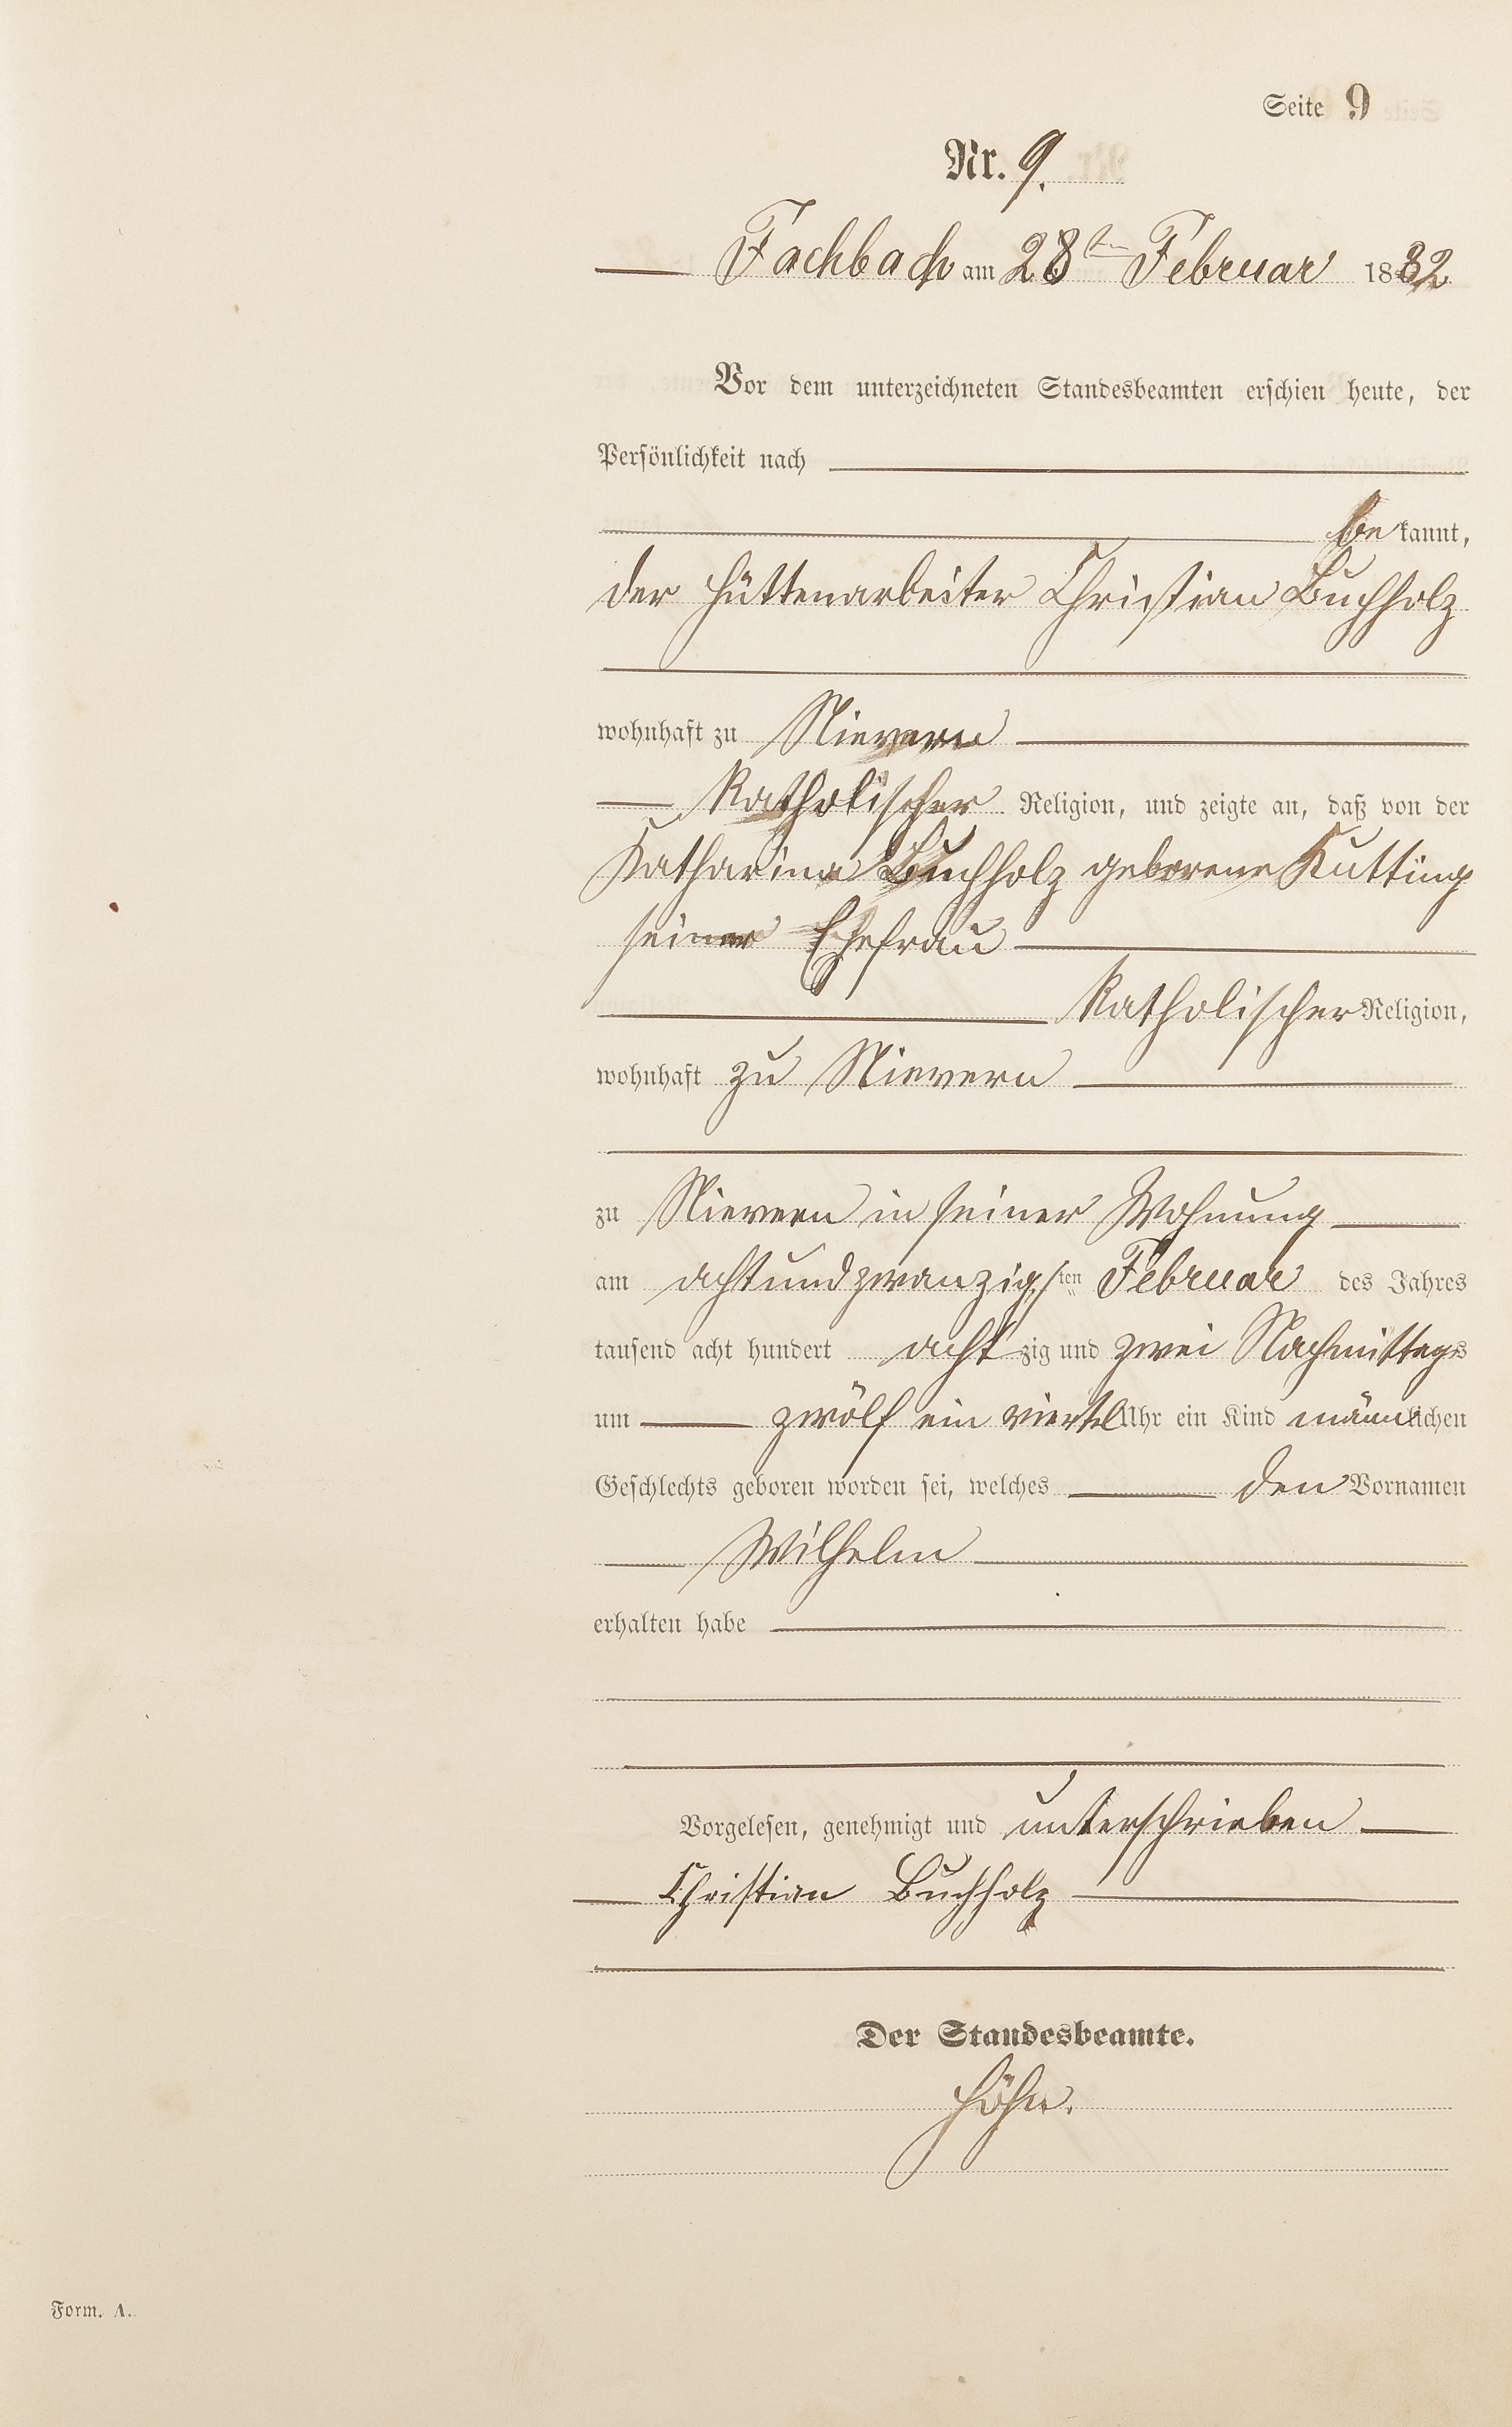 Seite 9
Nr. 9.
Fachbach am 28ten Februar 1882
Vor dem unterzeichneten Standesbeamten erschien heute, der
Persönlichkeit nach
be kannt,
der Hüttenarbeiter Christian Buchholz
wohnhaft zu Nievern
Katholischer Religion, und zeigte an, daß von der
Katharina Buchholz geborene Kutting
seiner Ehefrau
Katholischer Religion,
wohnhaft zu Nievern
zu Nievern in seiner Wohnung
am achtundzwanzigsten Februar des Jahres
tausend acht hundert acht zig und zwei Nachmittags
um zwölf ein viertel Uhr ein Kind männlichen
Geschlechts geboren worden sei, welches den Vornamen
Wilhelm
erhalten habe
Vorgelesen, genehmigt und unterschrieben
Christian Buchholz
Der Standesbeamte.
Höhn.
Form. A.